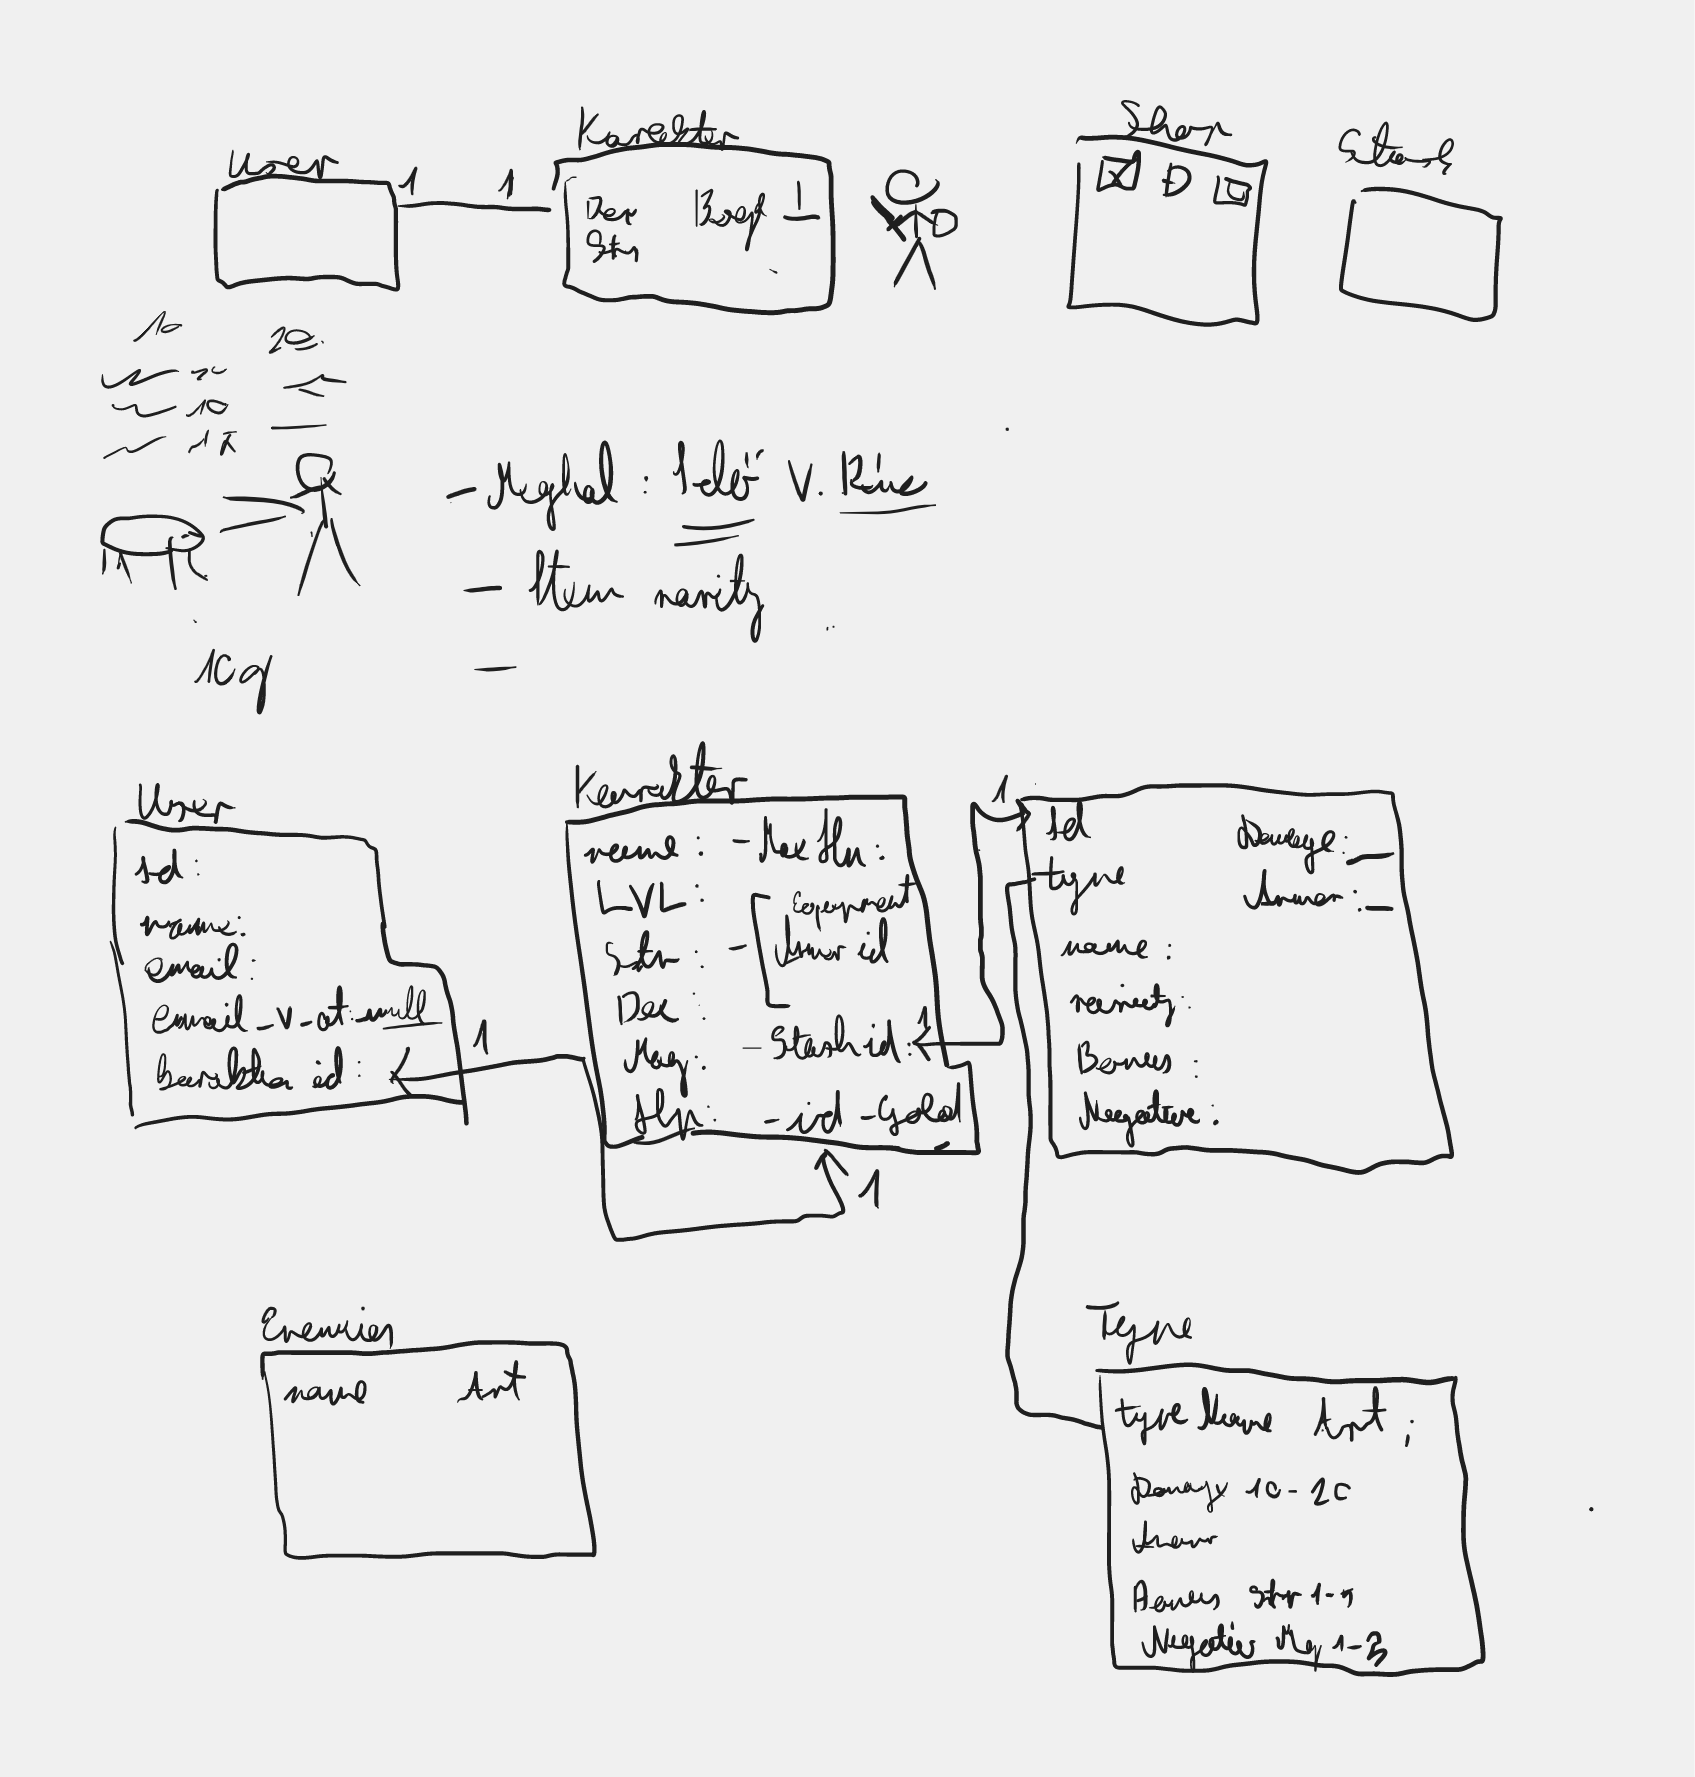 User
1 1
Karakter
Dex
Str
Shop
Stash
10
20
10
- Meghal : Idő v. Kinc
- Item rarity
-
10g
User
id :
name :
email :
email_v_at : null
karakter id :
1
Karakter
name :
LVL :
Str :
Dex :
Mag :
Hp :
- Max Hp :
Equipment
- Armor id
- Stash id : 1
- id - Gold
1
1
id
type
name :
rarity :
Bonus :
Negative :
Damage :
Armor :
Enemies
name Art
Type
typeName Art ;
Damage 10 - 20
Armor
Bonus Str 1-5
Negative Mag 1-3